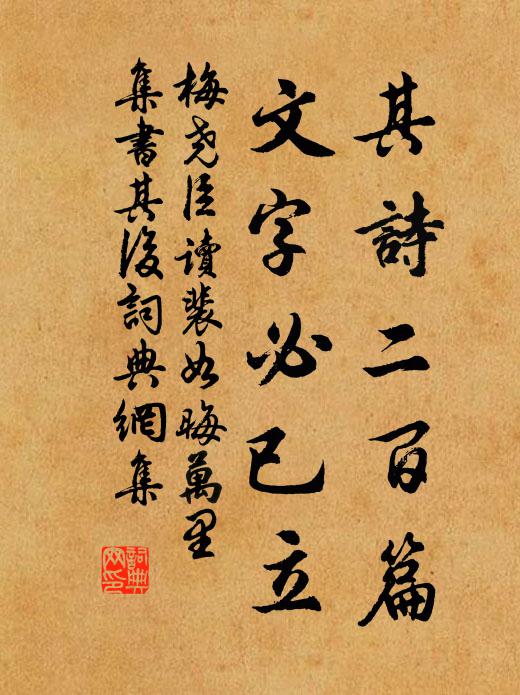 其詩二百篇
文字必已立
梅堯臣讀裴如晦萬里
集書其後詞典網集
詞典網印